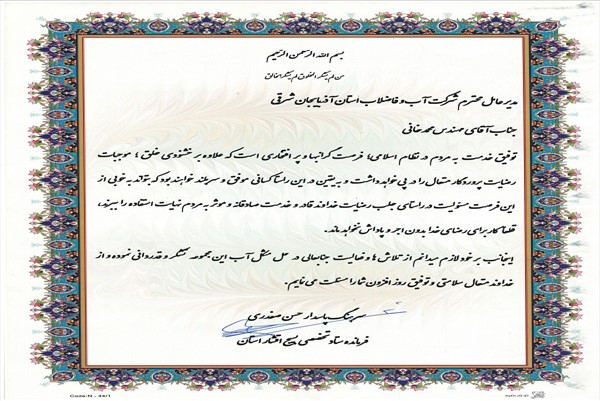 بسم الله الرحمن الرحیم
من لم یشکر المخلوق لم یشکر الخالق
مدیرعامل محترم شرکت آب و فاضلاب استان آذربایجان شرقی
جناب آقای مهندس محمدخانی
توفیق خدمت به مردم در نظام اسلامی؛ فرصت گرانبها و پر افتخاری است که علاوه بر خشنودی خلق؛ موجبات
رضایت پروردگار متعال را در پی خواهد داشت و به یقین در این راستا کسانی موفق و سربلند خواهند بود که بتواند به خوبی از
این فرصت مسئولیت در راستای جلب رضایت خداوند قادر و خدمت صادقانه و موثر به مردم نهایت استفاده را ببرند،
قطعا کار برای رضای خدا بدون اجر و پاداش نخواهد ماند.
اینجانب بر خود لازم میدانم از تلاش ها و فعالیت جنابعالی در حل مشکل آب این مجموعه تشکر و قدردانی نموده و از
خداوند متعال سلامتی و توفیق روز افزون شما را مسئلت می نمایم.
سرهنگ پاسدار حسن صفدری
فرمانده ستاد تخصصی بسیج اقشار استان
Code:N - 44/1